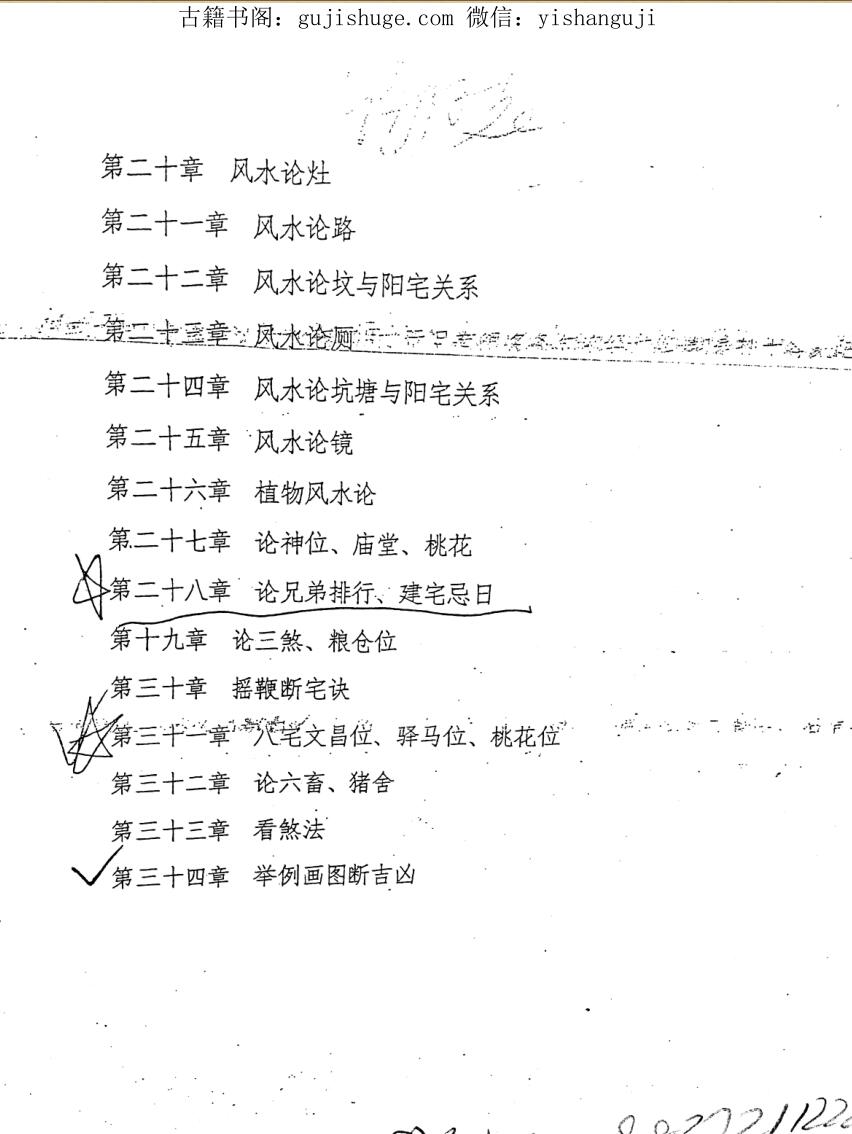 古籍书阁：gujishuge.com 微信：yishanguji
第二十章 风水论灶
第二十一章 风水论路
第二十二章 风水论坟与阳宅关系
第二十三章 风水论厕
第二十四章 风水论坑塘与阳宅关系
第二十五章 风水论镜
第二十六章 植物风水论
第二十七章 论神位、庙堂、桃花
第二十八章 论兄弟排行、建宅忌日
第十九章 论三煞、粮仓位
第三十章 摇鞭断宅诀
第三十一章 八宅文昌位、驿马位、桃花位
第三十二章 论六畜、猪舍
第三十三章 看煞法
第三十四章 举例画图断吉凶